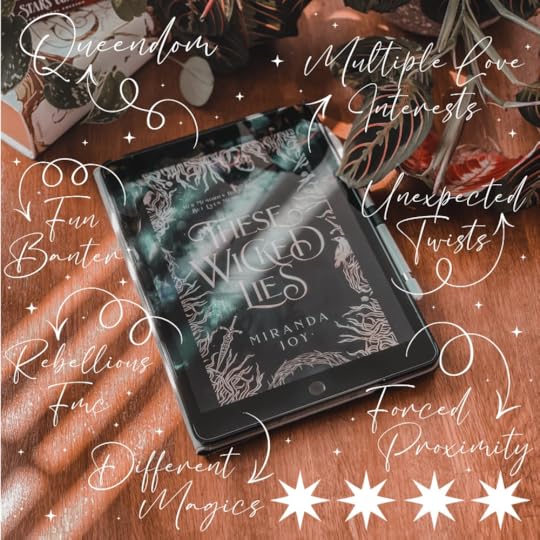 STARS
Queendom
Multiple Love
Interests
Fun
Banter
Unexpected
Twists
THESE
WICKED
LIES
MIRANDA
JOY
Rebellious
Fmc
Forced
Proximity
Different
Magics